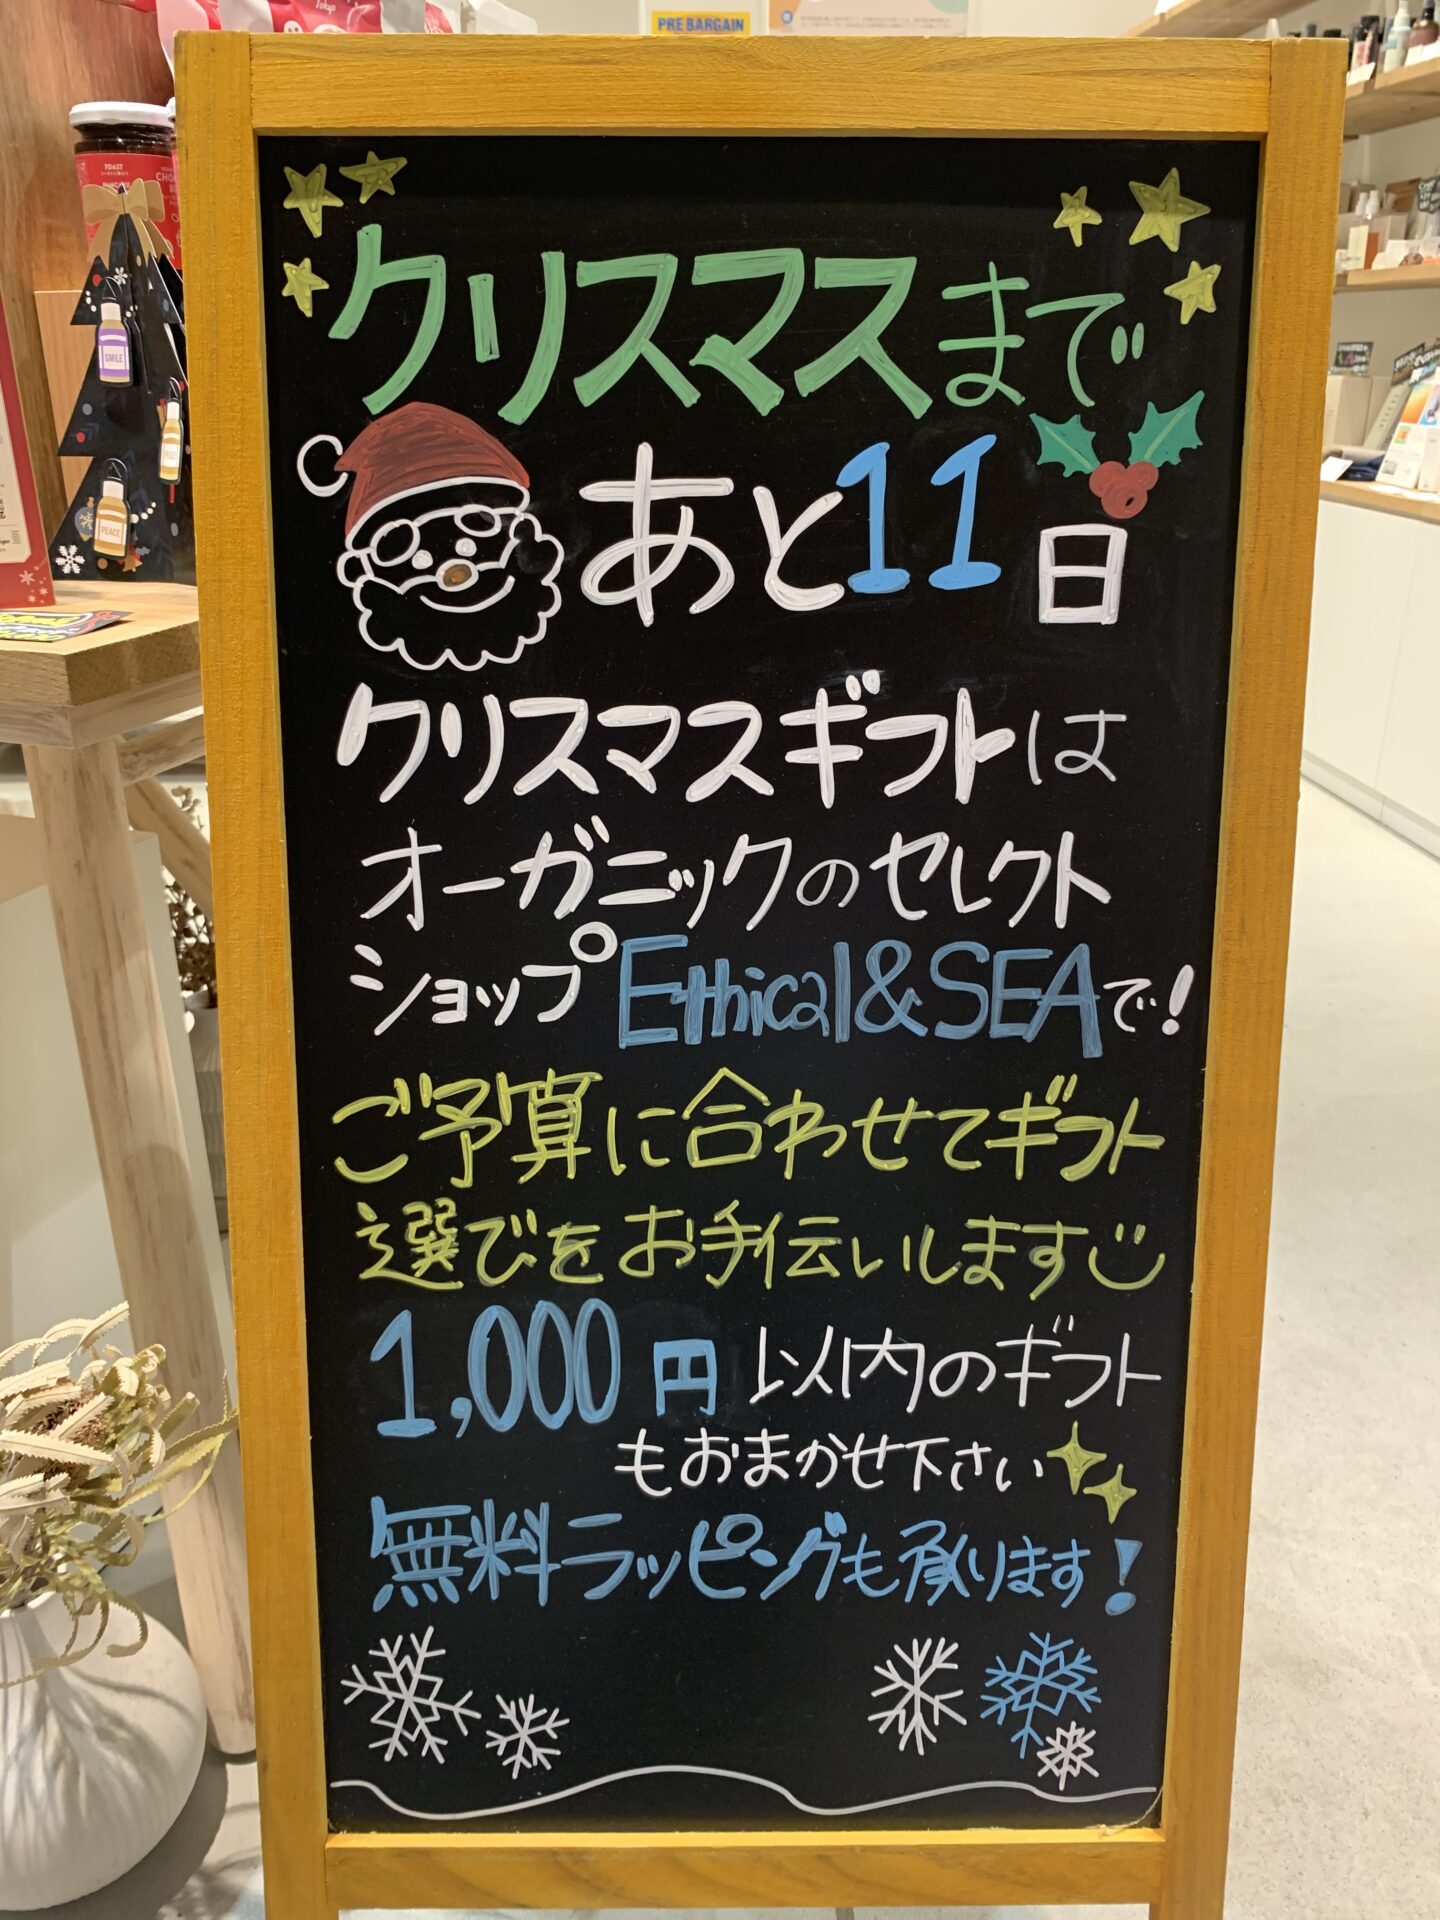 PRE BARGAIN
Tokyo
TOAST
PANCAKE
SMILE
PEACE
クリスマスまで
あと11日
クリスマスギフトは
オーガニックのセレクト
ショップEthical&SEAで!
ご予算に合わせてギフト
選びをお手伝いします
1,000円以内のギフト
もおまかせ下さい
無料ラッピングも承ります!